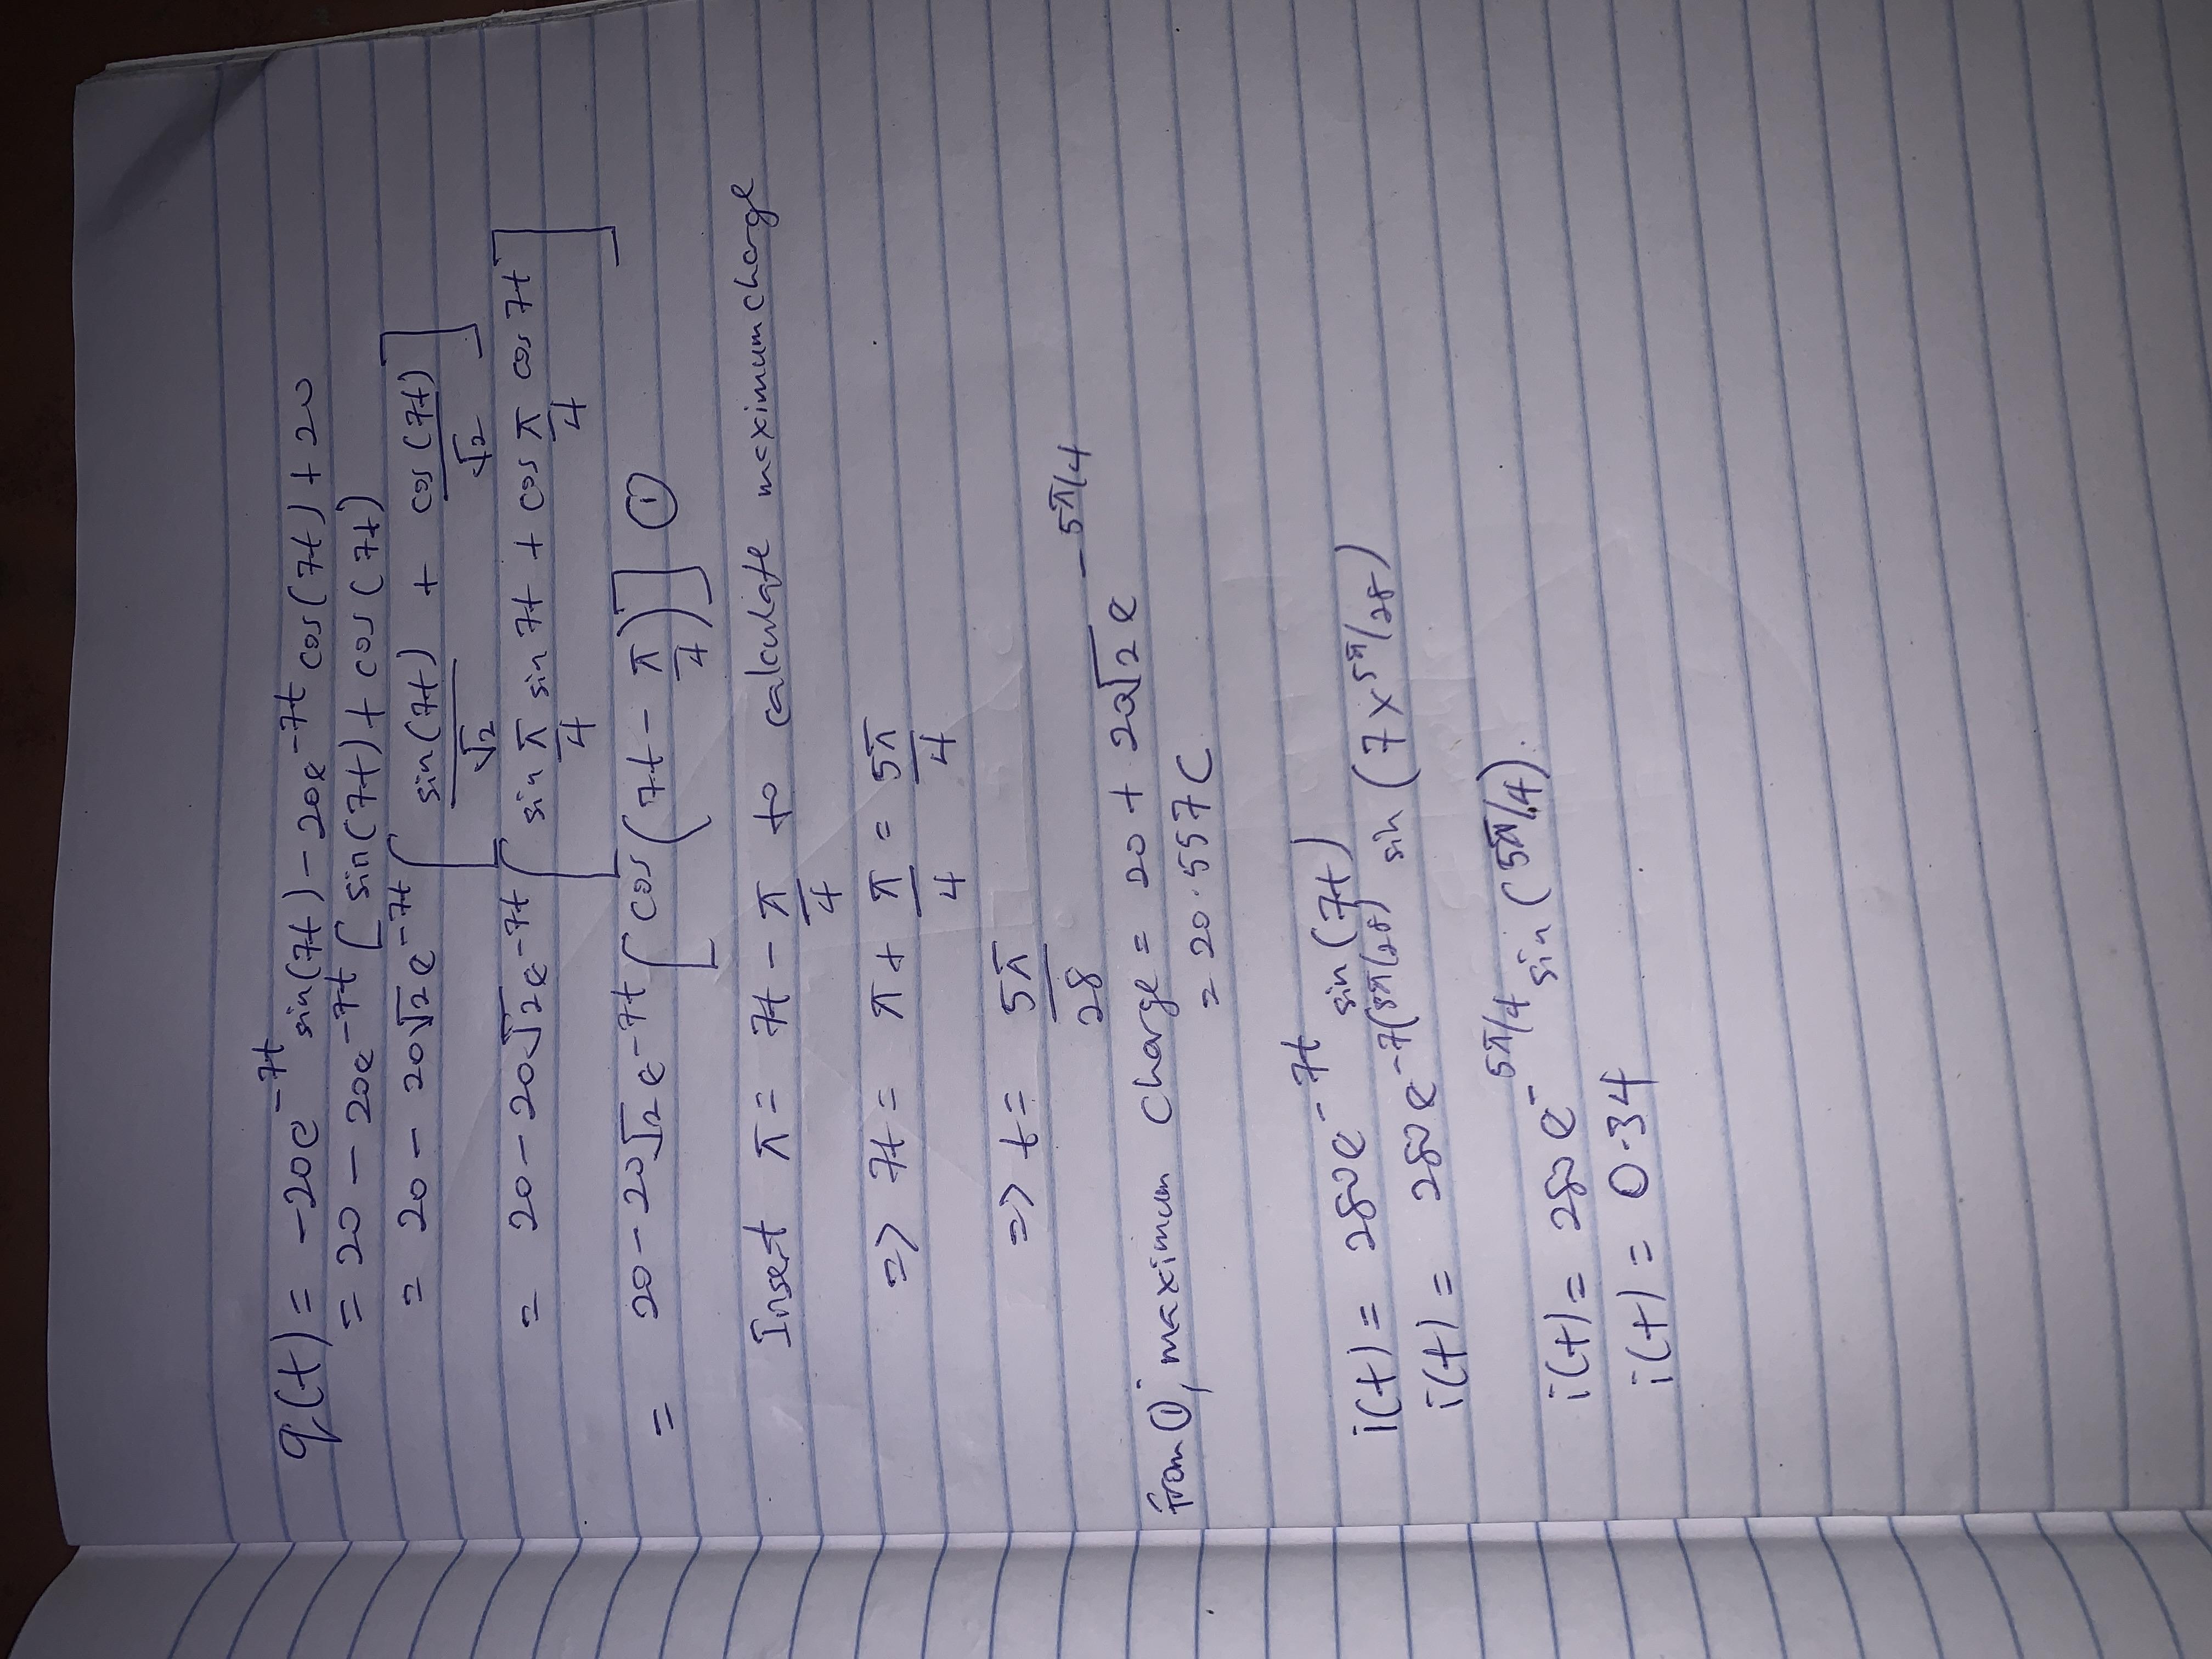 q(t) = -20e^-7t sin(7t) - 20e^-7t cos(7t) + 20
= 20 - 20e^-7t [sin(7t) + cos(7t)
= 20 - 20√2 e^-7t [sin(7t)/√2 + cos(7t)/√2]
= 20 - 20√2 e^-7t [sin π/4 sin 7t + cos π/4 cos 7t]
= 20 - 20√2 e^-7t [cos(7t - π/4)] ①
Insert π = 7t - π/4 to calculate maximum charge
=> 7t = π + π/4 = 5π/4
=> t = 5π/28
from ①, maximum charge = 20 + 20√2 e^-5π/4
= 20.557C
i(t) = 280e^-7t sin(7t)
i(t) = 280 e^-7(5π/28) sin(7×5π/28)
i(t) = 280 e^-5π/4 sin(5π/4).
i(t) = 0.34